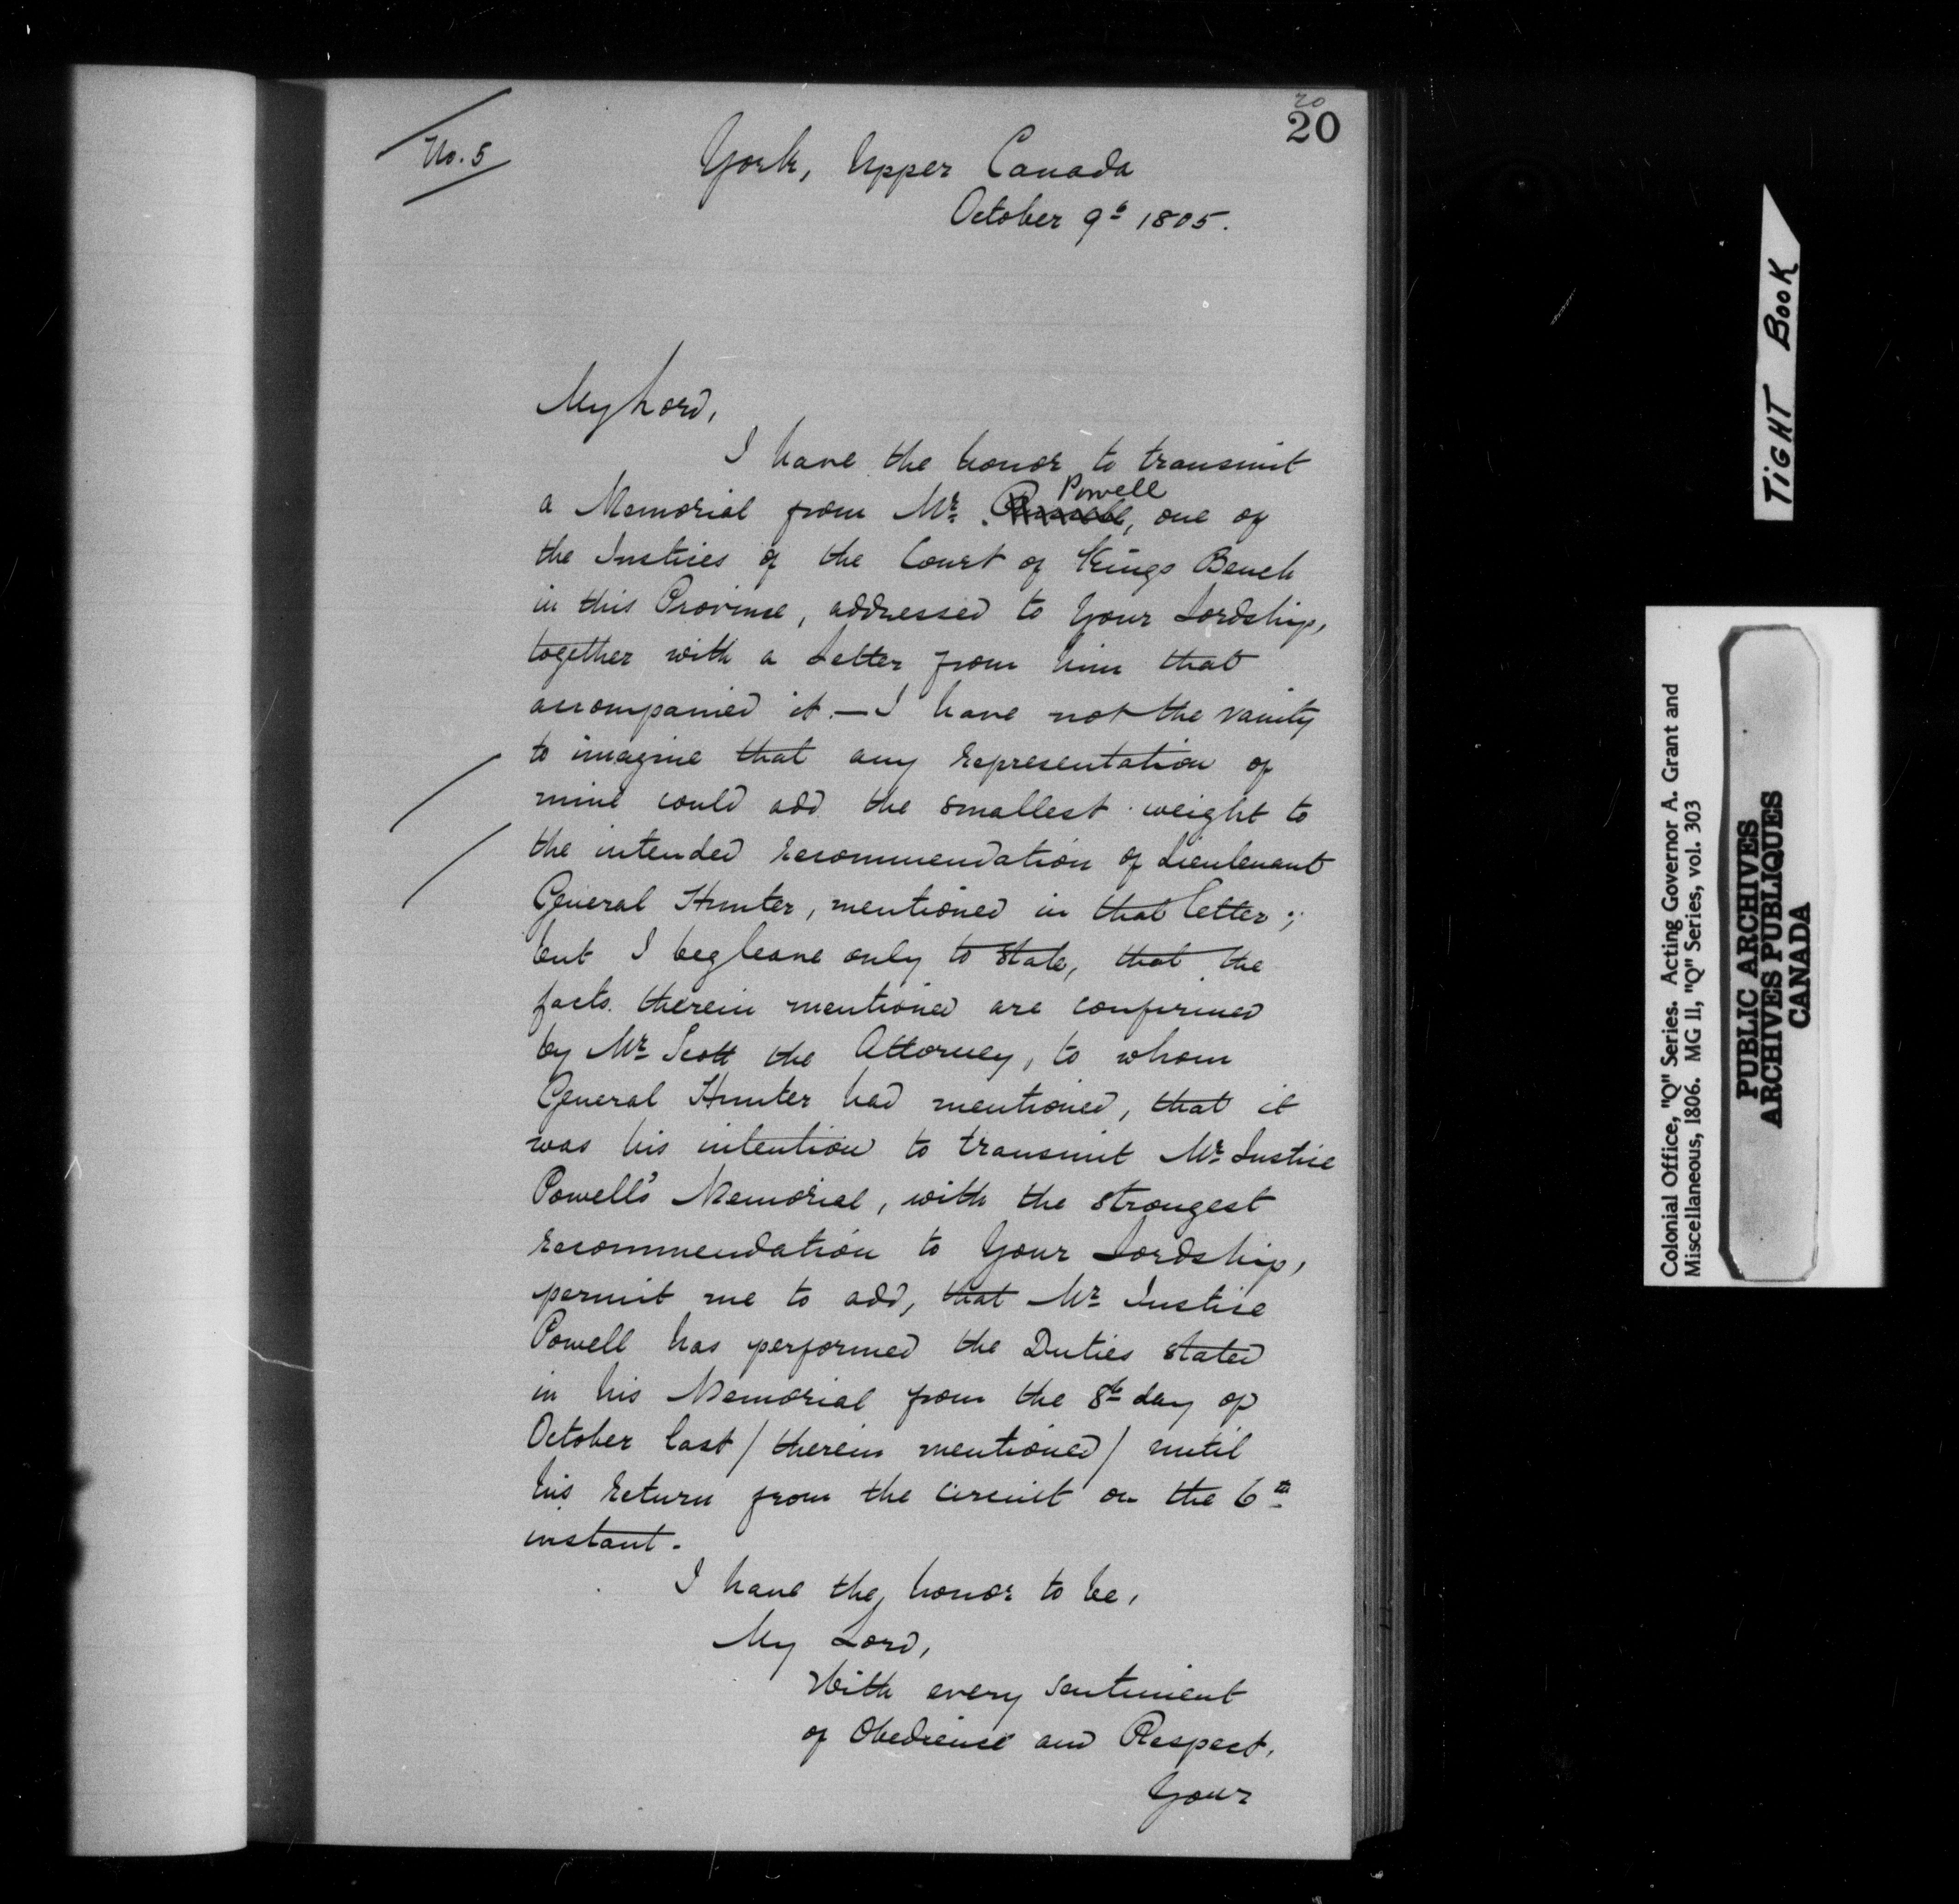 20
20
No. 5
York, Upper Canada
October 9th 1805.
My Lord,
I have the honor to transmit
a Memorial from Mr. Powell, one of
the Justices of the Court of Kings Bench
in this Province, addressed to Your Lordship,
together with a Letter from him that
accompanied it. — I have not the vanity
to imagine that any representation of
mine could add the smallest weight to
the intended recommendation of Lieutenant
General Hunter, mentioned in that letter;
but I beg leave only to state, that the
facts therein mentioned are confirmed
by Mr. Scott the Attorney, to whom
General Hunter had mentioned, that it
was his intention to transmit Mr. Justice
Powell's Memorial, with the strongest
recommendation to Your Lordship,
permit me to add, that Mr. Justice
Powell has performed the Duties stated
in his Memorial from the 8th day of
October last / therein mentioned / until
his return from the circuit on the 6th
instant.
I have the honor to be,
My Lord,
With every sentiment
of Obedience and Respect,
Your
TIGHT BOOK
Colonial Office, "Q" Series. Acting Governor A. Grant and
Miscellaneous, 1806. MG 11, "Q" Series, vol. 303
PUBLIC ARCHIVES
ARCHIVES PUBLIQUES
CANADA